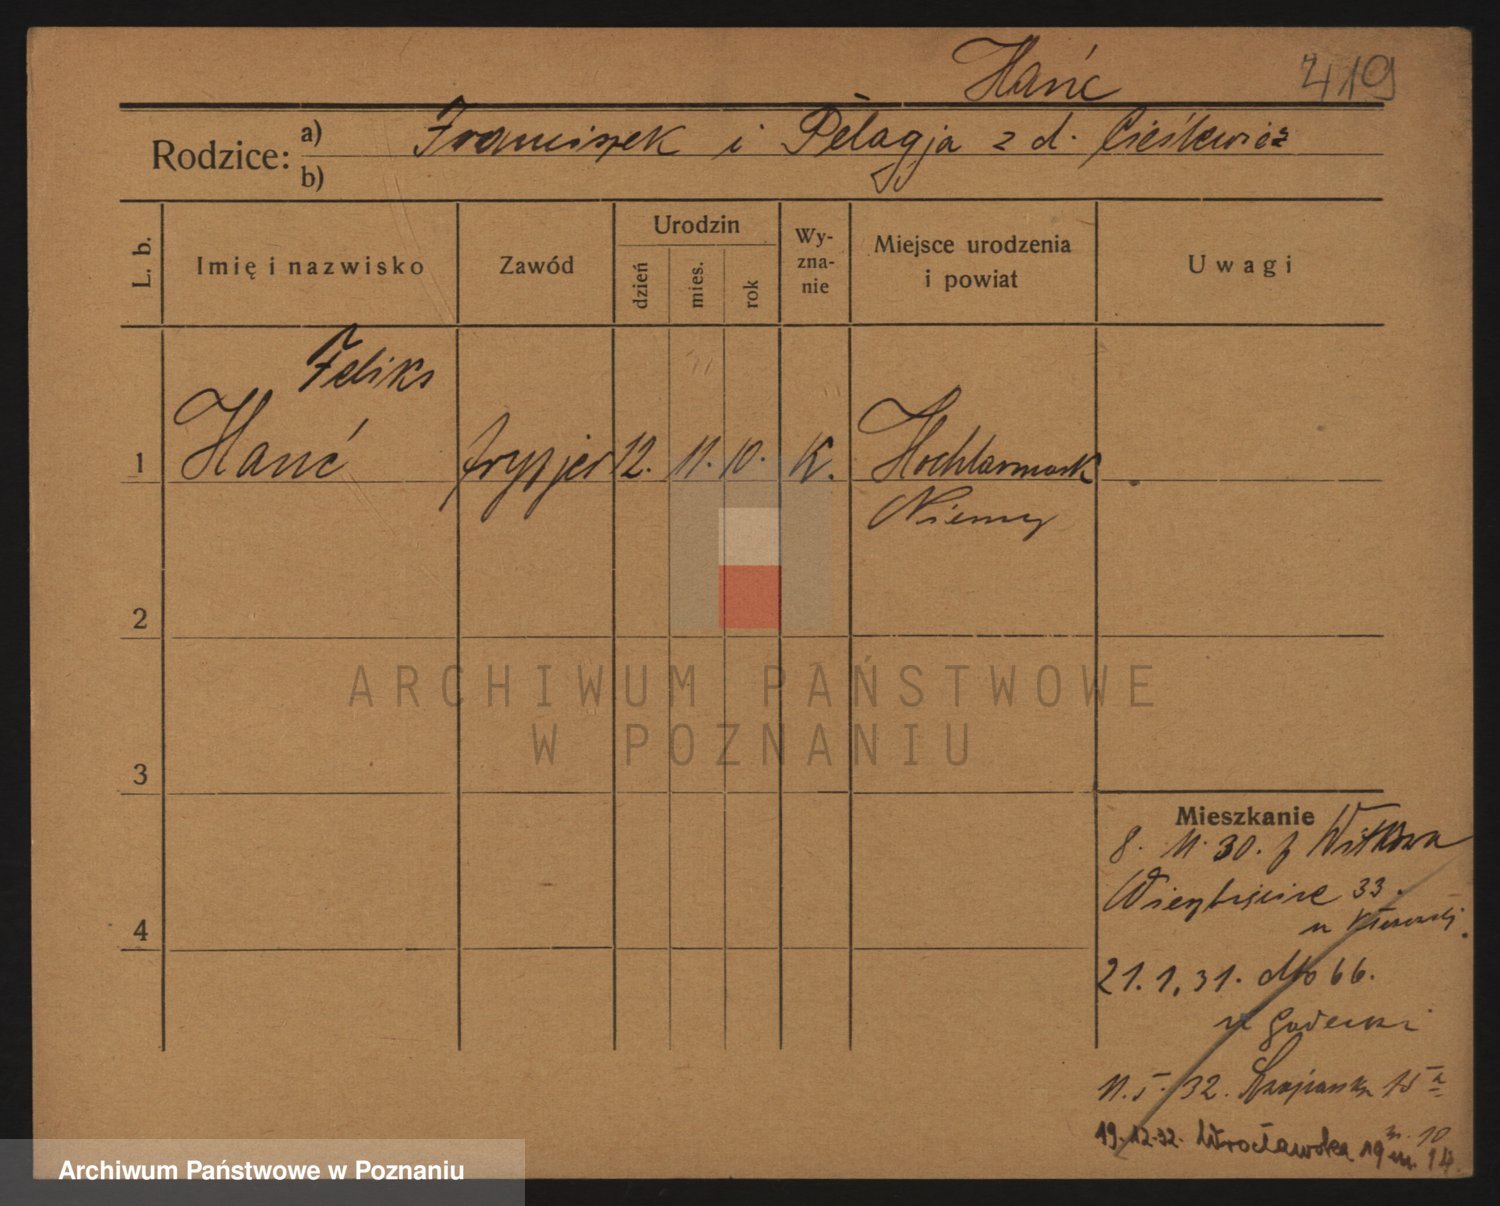 Hańć 419
Rodzice: a) Franciszek i Pelagja z d. Cieślewicz
b)
L. b. Imię i nazwisko Zawód Urodzin Wyznanie Miejsce urodzenia i powiat Uwagi
dzień mies. rok
Feliks
1 Hańć fryzjer 12. 11. 10. K. Hochlarmark
Niemcy
2
ARCHIWUM PAŃSTWOWE
W POZNANIU
3
Mieszkanie
8. 11. 30. z Witkowa
Wierzbięcice 33.
u
4
21. 1. 31. dto 66.
u
11. 5. 32.
19. 12. 32. Wrocławska 19 m. 14.
m. 10
Archiwum Państwowe w Poznaniu